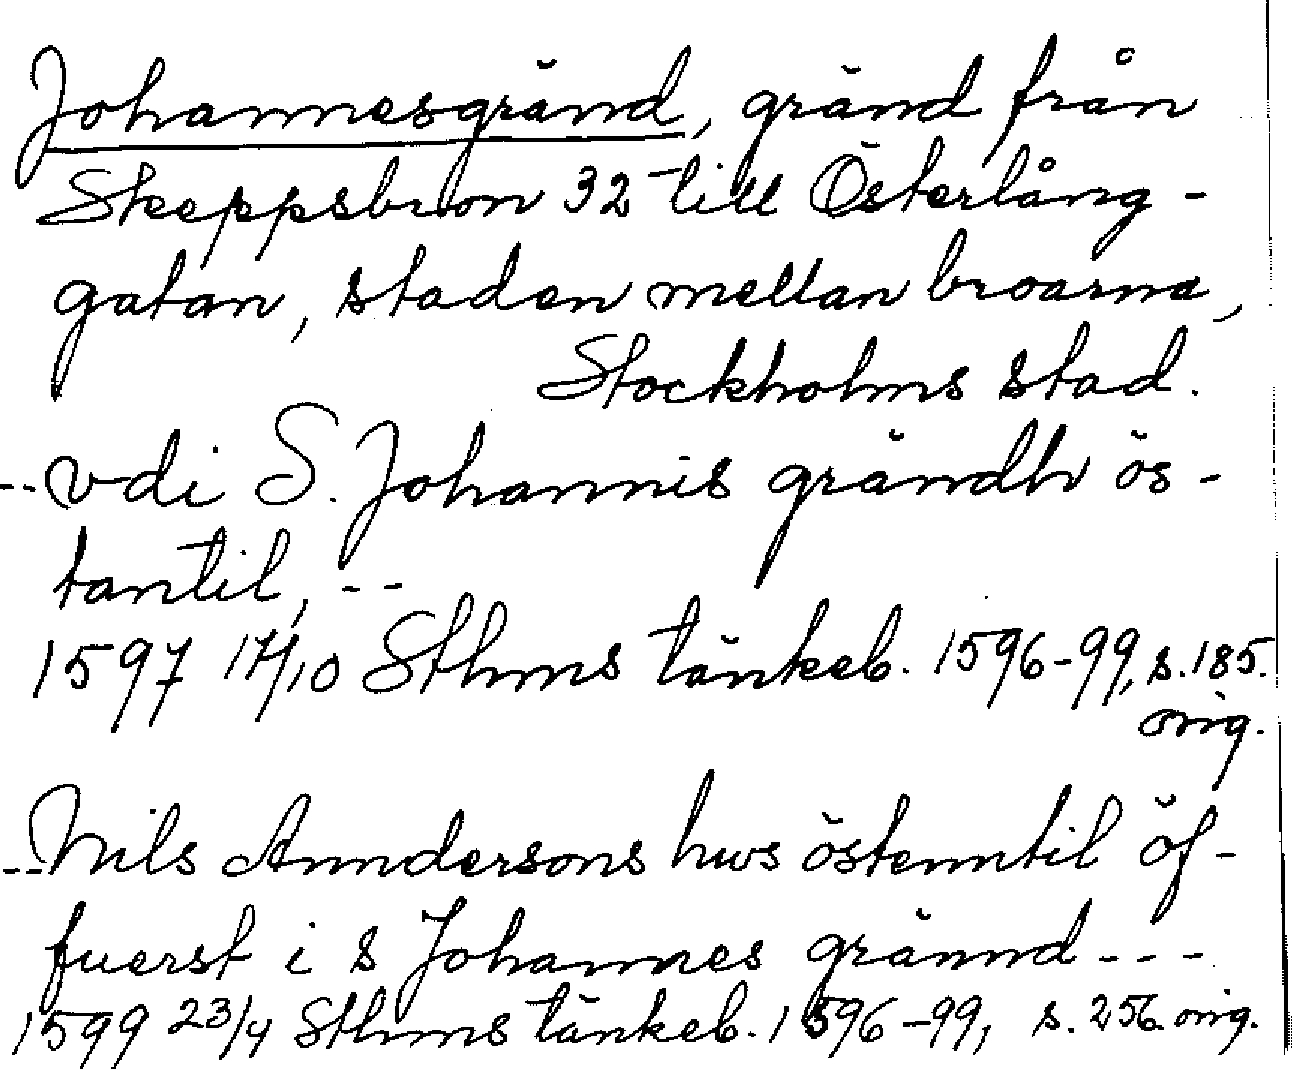 Johannesgränd, gränd från
Skeppsbron 32 till Österlång-
gatan, staden mellan broarna,
Stockholms stad.
--vdi S. Johannis grändh ös-
tantil, --
1597 17/10 Sthms tänkeb. 1596-99, s. 185.
orig.
--Nils Anndersons hws östenntil öf-
fuerst i s Johannes grännd---
1599 23/4 Sthms tänkeb. 1596-99, s. 256. orig.